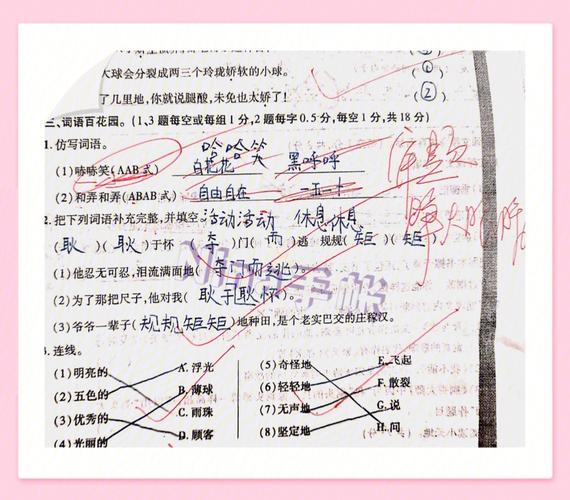 大球会分裂成两三个玲珑娇软的小球。 ( ① )
了几里地,你就说腿酸,未免也太娇了! ( ② )
三、词语百花园。(1、3题每空或每组1分,2题每字0.5分,每空1分,共18分)
1. 仿写词语。
哈哈笑
(1)哧哧笑(AAB式) 白花花 黑呼呼
(2)和弄和弄(ABAB式) 自由自在 一五一十
活动活动 休息休息
2. 把下列词语补充完整,并填空。
(耿)(耿)于怀 (夺)门(而)逃 规规(矩)(矩)
(1)他忍无可忍,泪流满面地(夺门而逃)。
(2)为了那把尺子,他对我(耿于耿怀)。
(3)爷爷一辈子(规规矩矩)地种田,是个老实巴交的庄稼汉。
3. 连线。
(1)明亮的 A. 浮光 (5)奇怪地 E. 飞起
(2)五色的 B. 薄球 (6)轻轻地 F. 散裂
(3)优秀的 C. 雨珠 (7)无声地 G. 说
(4)光丽的 D. 顾客 (8)坚定地 H. 问